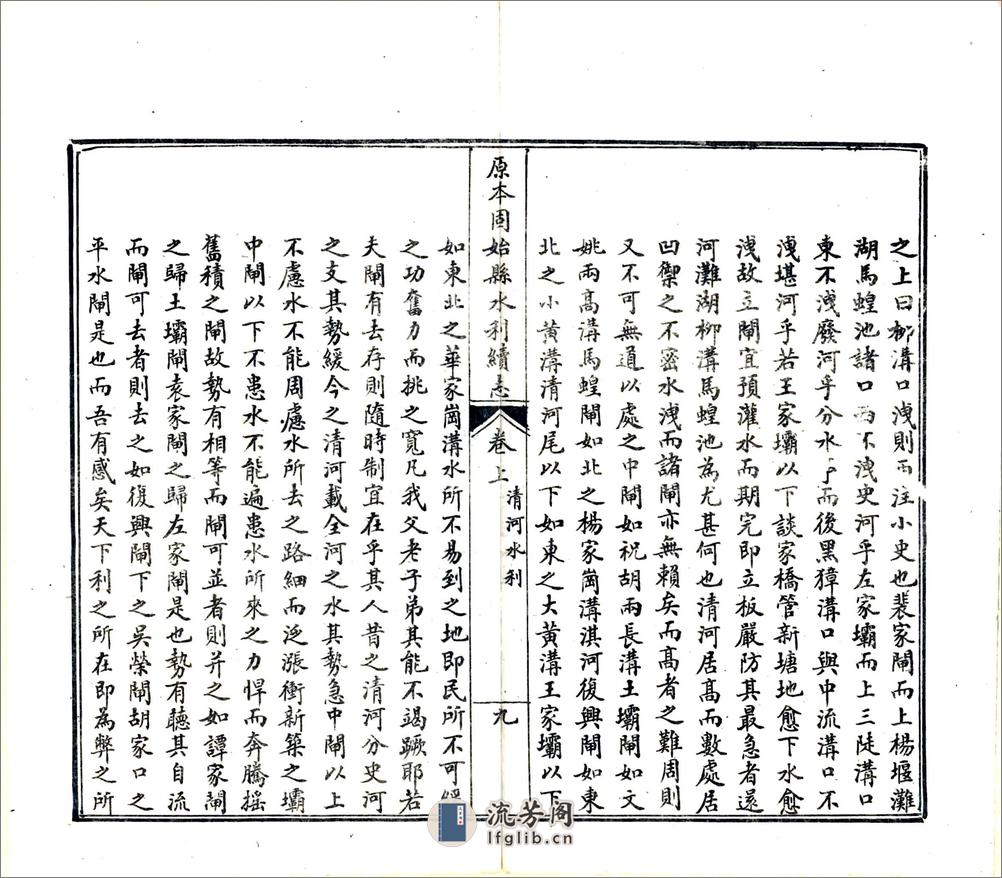 之上曰柳溝口洩則而注小史也裴家閘而上楊堰灘
湖馬蝗池諸口不洩史河乎左家壩而上三陡溝口
東不洩廢河乎分水亭而後黑獐溝口與中流溝口不
洩堪河乎若王家壩以下談家橋管新塘地愈下水愈
洩故立閘宜預灌水而期完即立板嚴防其最急者還
河灘湖柳溝馬蝗池為尤甚何也清河居高而數處居
凹禦之不密水洩而諸閘亦無賴矣而高者之難周則
又不可無道以處之中閘如祝胡兩長溝土壩閘如文
姚兩高溝馬蝗閘如北之楊家崗溝淇河復興閘如東
北之小黃溝清河尾以下如東之大黃溝王家壩以下
原本固始縣水利續志 卷上 清河水利 九
如東北之華家崗溝水所不易到之地即民所不可緩
之功奮力而挑之寬凡我父老子弟其能不竭蹶耶若
夫閘有去存則隨時制宜在乎其人昔之清河分史河
之支其勢緩今之清河載全河之水其勢急中閘以上
不慮水不能周慮水所去之路細而泛漲衝新築之壩
中閘以下不患水不能遍患水所來之力悍而奔騰搖
舊積之閘故勢有相等而閘可並者則并之如譚家閘
之歸土壩閘袁家閘之歸左家閘是也勢有聽其自流
而閘可去者則去之如復興閘下之吳榮閘胡家口之
平水閘是也而吾有感矣天下利之所在即為弊之所
流芳阁
lfglib.cn